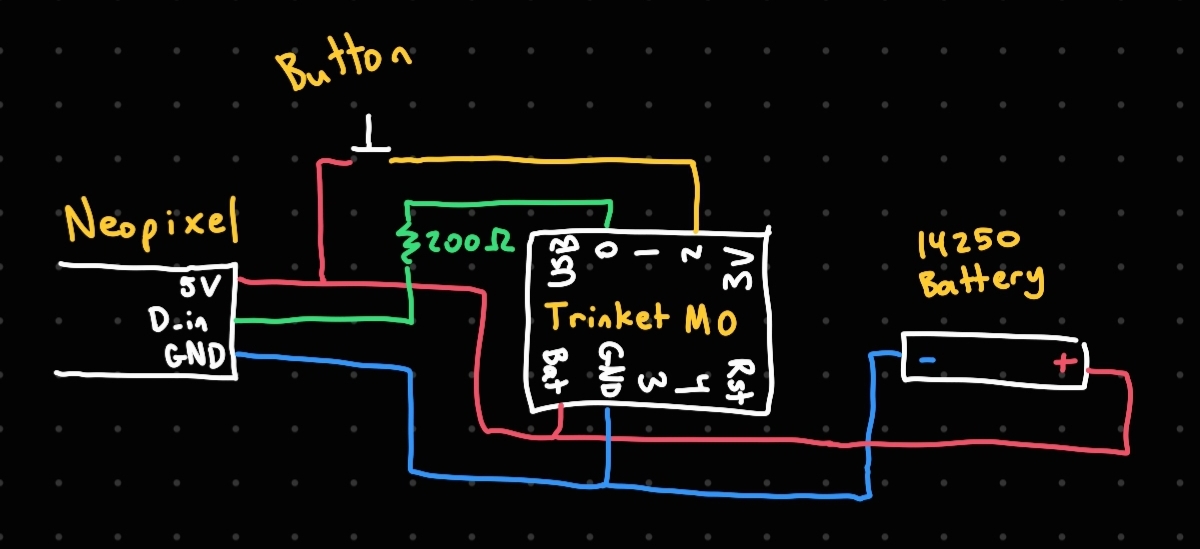 Button
Neopixel
5V
D-in
GND
200Ω
USB
0
1
2
3V
Trinket M0
Bat
GND
3
4
Rst
14250
Battery
-
+